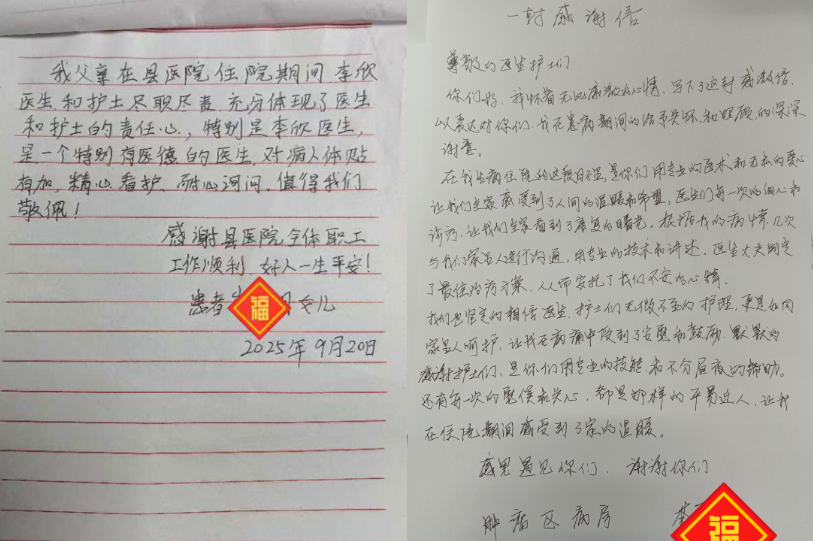 我父亲在县医院住院期间 李欣
医生和护士尽职尽责 充分体现了医生
和护士的责任心，特别是李欣医生，
是一个特别有医德的医生，对病人体贴
有加，精心看护、耐心询问，值得我们
敬佩！
感谢县医院全体职工
工作顺利 好人一生平安！
患者 福 女儿
2025年9月20日
一封感谢信
尊敬的医生护士们：
你们好，我怀着无比感激的心情，写下了这封感激信，
以表达对你们，我在患病期间的治予关怀，和照顾，的深深
谢意。
在我生病住院的这段日子里，是你们用专业的医术和无私的爱心
让我们全家感受到了人间的温暖和希望，医生们每一次的细心和
诊疗，让我们全家看到了康复的曙光。根据我的病情，几次
与我们家人进行沟通，用专业的技术和讲述，医生大夫制定
了最佳治疗方案，从而安抚了我们不安的心情。
我们也坚定的相信医生，护士们无微不至的护理，更是如同
家人呵护，让我在病痛中感到了安慰和鼓励，默默的
感谢护士们、是你们用专业的技能和不分昼夜的辅助。
还有每一次的问候和关心，都是那样的平易近人，让我
在住院期间感受到了家的温暖。
感恩遇见你们，谢谢你们
肿瘤区病房 福